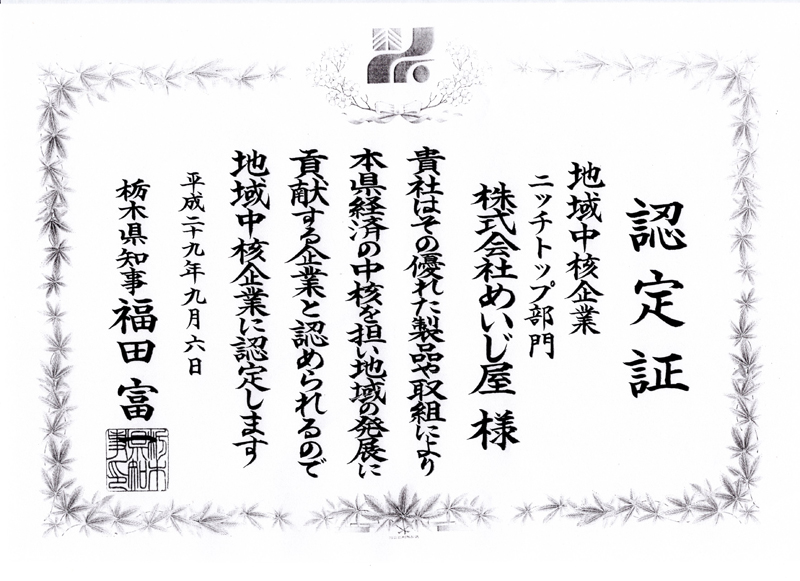 認定証
地域中核企業
ニッチトップ部門
株式会社めいじ屋 様
貴社はその優れた製品や取組により
本県経済の中核を担い地域の発展に
貢献する企業と認められるので
地域中核企業に認定します
平成二十九年九月六日
栃木県知事 福田 富一
栃木県知事印